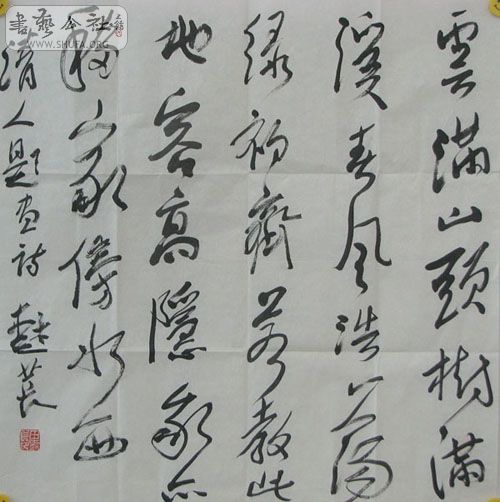 雲滿山頭樹滿
溪春風浩蕩
綠初齊若教此
地容高隱我亦
移家傍水西
清人題畫詩
書藝公社
WWW.SHUFA.ORG